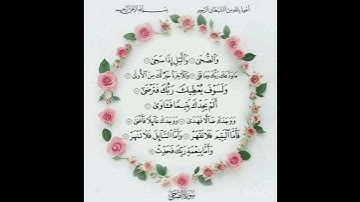 أعوذ بالله من الشيطان الرجيم
بسم الله الرحمن الرحيم
وَالضُّحَىٰ ۝ وَاللَّيْلِ إِذَا سَجَىٰ ۝
مَا وَدَّعَكَ رَبُّكَ وَمَا قَلَىٰ ۝ وَلَلْآخِرَةُ خَيْرٌ لَّكَ مِنَ الْأُولَىٰ ۝
وَلَسَوْفَ يُعْطِيكَ رَبُّكَ فَتَرْضَىٰ ۝
أَلَمْ يَجِدْكَ يَتِيمًا فَآوَىٰ ۝
وَوَجَدَكَ ضَالًّا فَهَدَىٰ ۝ وَوَجَدَكَ عَائِلًا فَأَغْنَىٰ ۝
فَأَمَّا الْيَتِيمَ فَلَا تَقْهَرْ ۝ وَأَمَّا السَّائِلَ فَلَا تَنْهَرْ ۝
وَأَمَّا بِنِعْمَةِ رَبِّكَ فَحَدِّثْ ۝
سورة الضحى